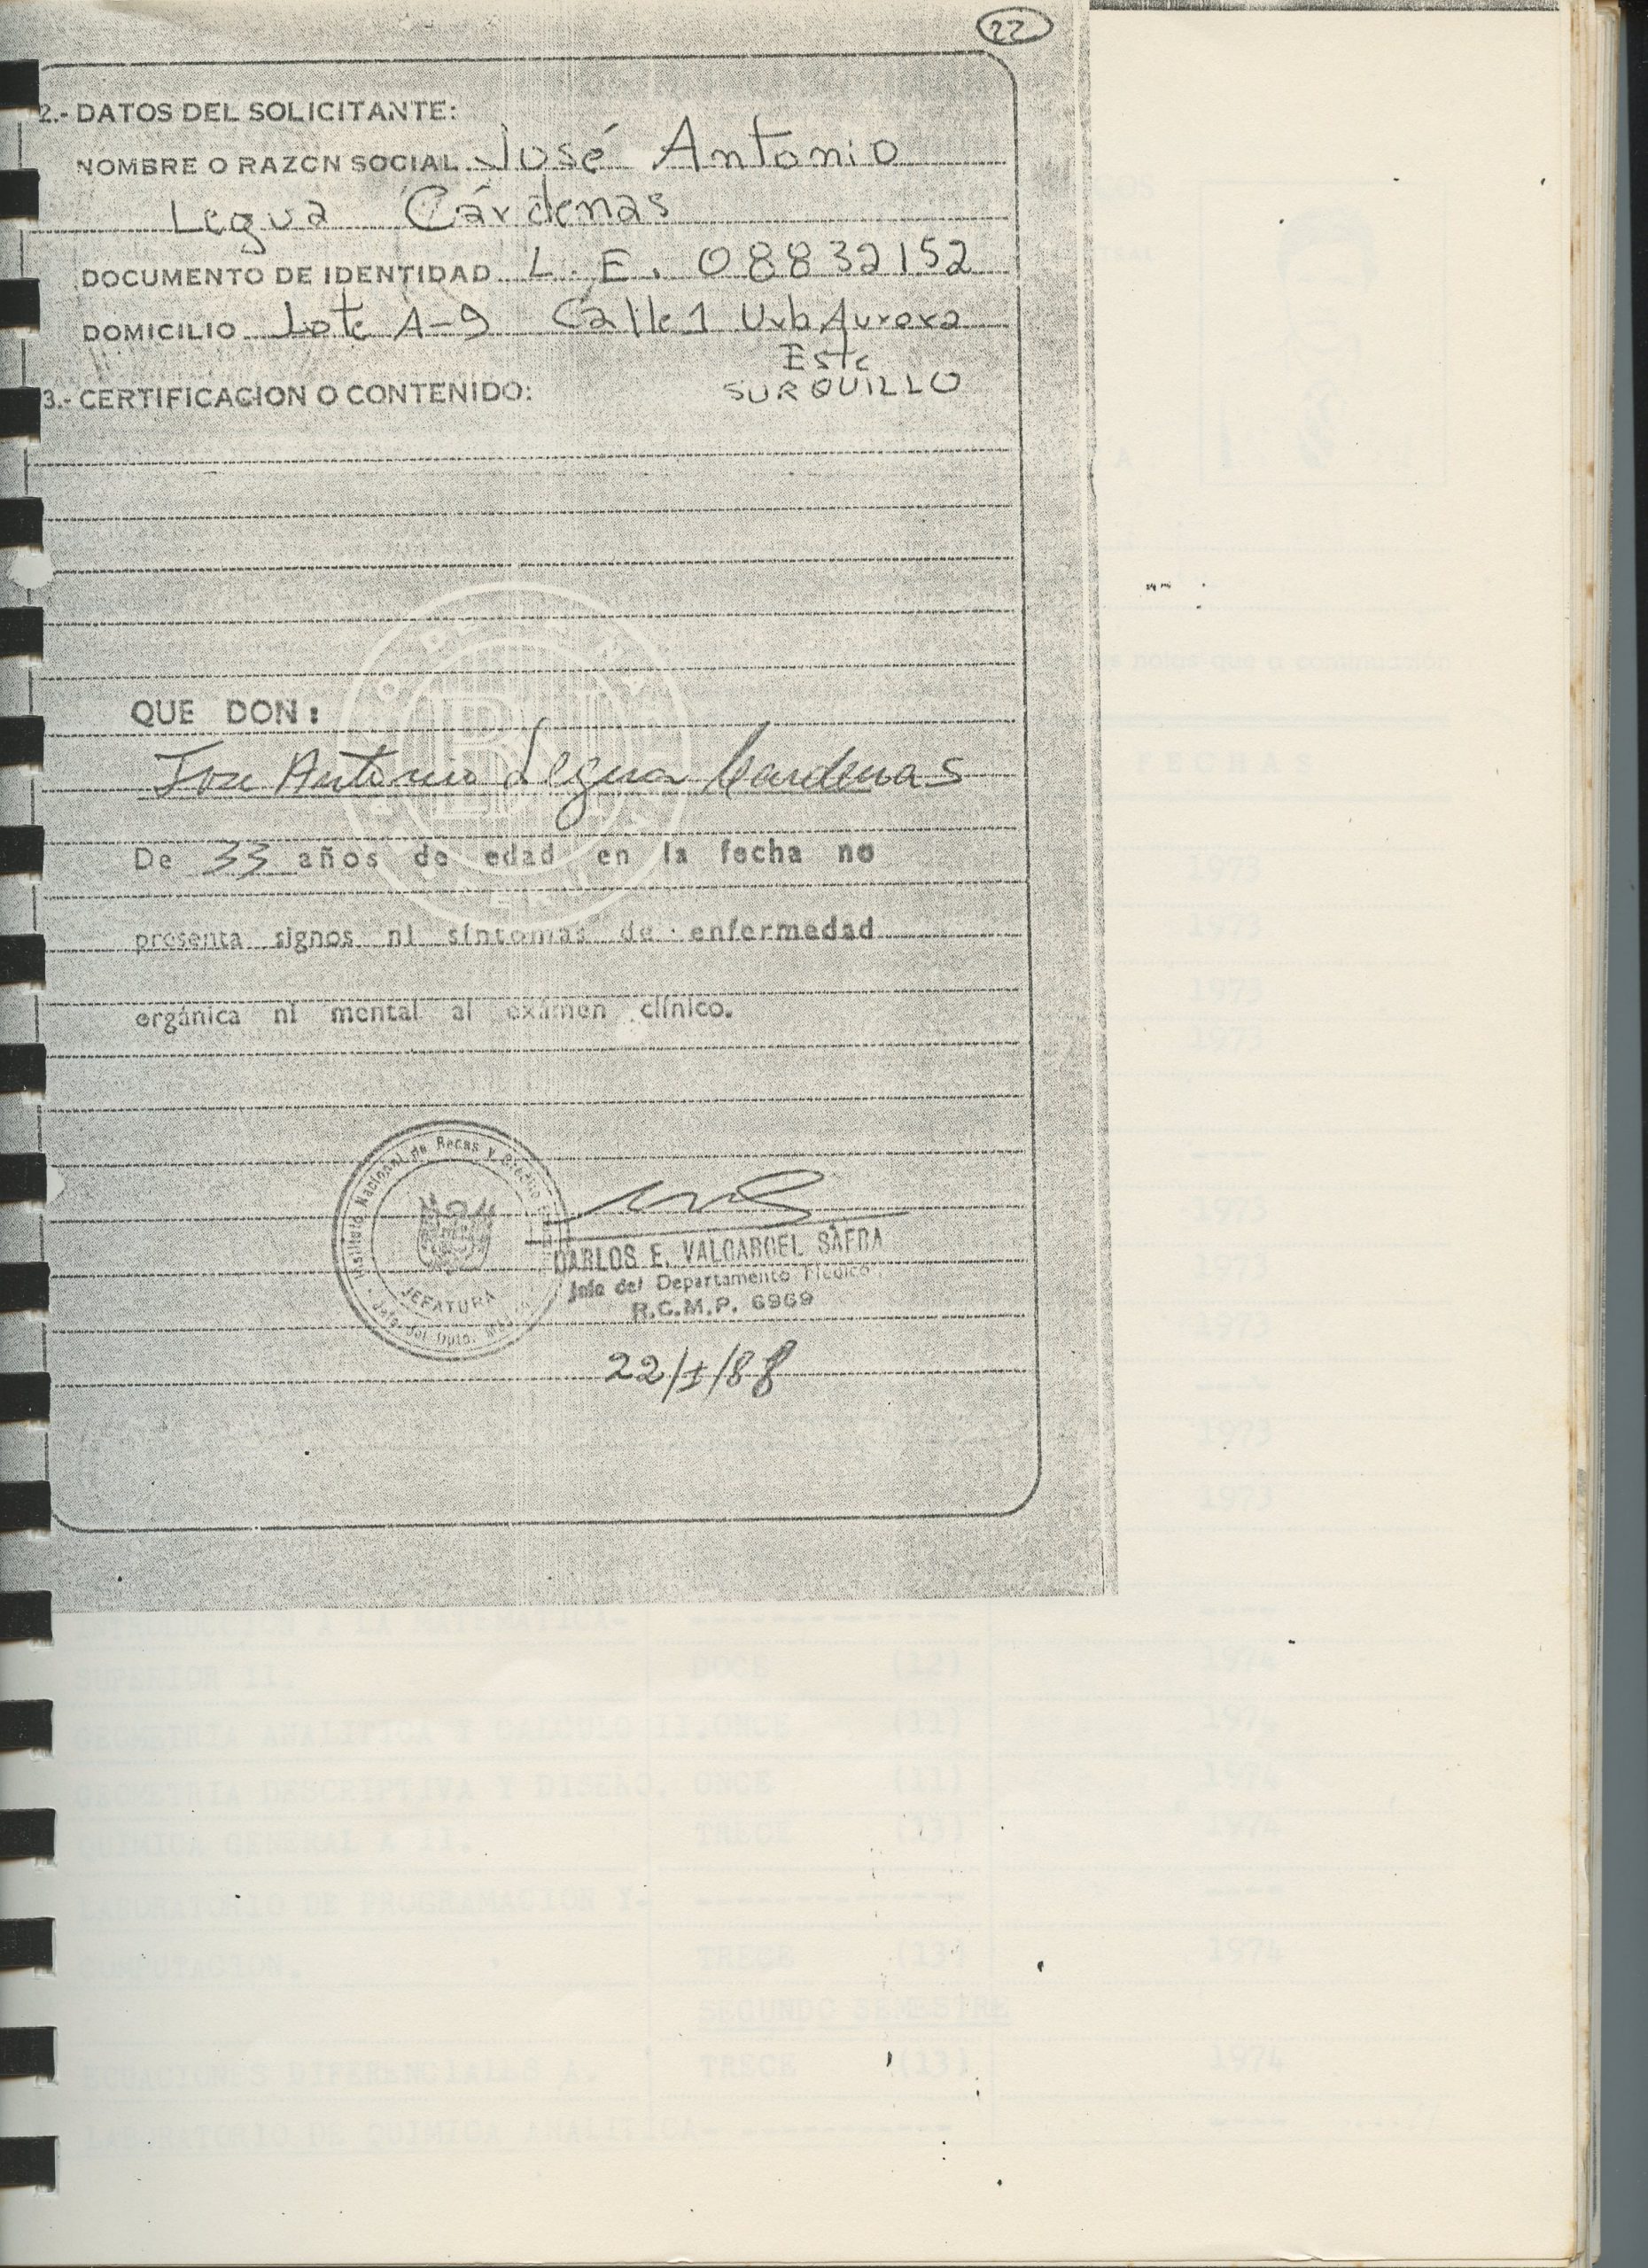 22
2.- DATOS DEL SOLICITANTE:
NOMBRE O RAZON SOCIAL José Antonio
Legua Cárdenas
DOCUMENTO DE IDENTIDAD L.E. 08832152
DOMICILIO Lote A-9 Calle 1 Urb Aurora
Este
SURQUILLO
3.- CERTIFICACION O CONTENIDO:
QUE DON:
Jose Antonio Legua Cardenas
De 33 años de edad en la fecha no
presenta signos ni síntomas de enfermedad
orgánica ni mental al exámen clínico.
Instituto Nacional de Becas y Crédito
JEFATURA
CARLOS E.
Jefe del Departamento Médico
R.C.M.P. 6969
22/I/88
FECHAS
1973
1973
1973
1973
1973
1973
1973
1973
1973
SUPERIOR II. DOCE (12) 1974
GEOMETRIA ANALITICA Y CALCULO II. ONCE (11) 1974
GEOMETRIA DESCRIPTIVA Y DISEÑO. ONCE (11) 1974
QUIMICA GENERAL A II. TRECE (13) 1974
LABORATORIO DE PROGRAMACION Y-
COMPUTACION. TRECE (13) 1974
SEGUNDO SEMESTRE
ECUACIONES DIFERENCIALES A. TRECE (13) 1974
LABORATORIO DE QUIMICA ANALITICA-